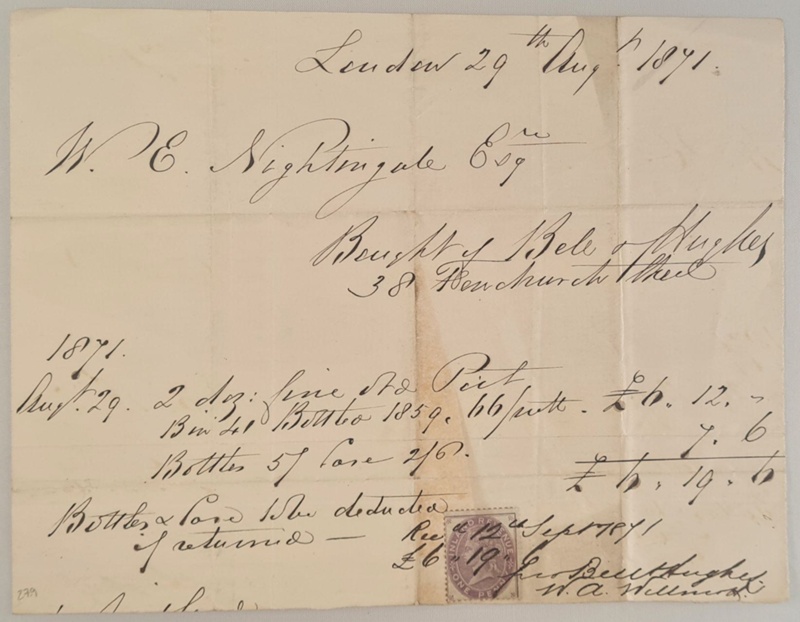 London 29th Augt. 1871.
W. E. Nightingale Esqre
Bought of Bell & Hughes
38 Fenchurch Street
1871.
Augt. 29. 2 doz: fine old Port
Bin 41 Bottled 1859. 66/nett. £6. 12. "
Bottles 5/ Case 2/6. 7. 6
£6. 19. 6
Bottles & Case to be deducted
if returned —
Recd 12th Sept 1871
£6 " 19 "
INLAND REVENUE
ONE PENNY
Bell & Hughes
W. A.